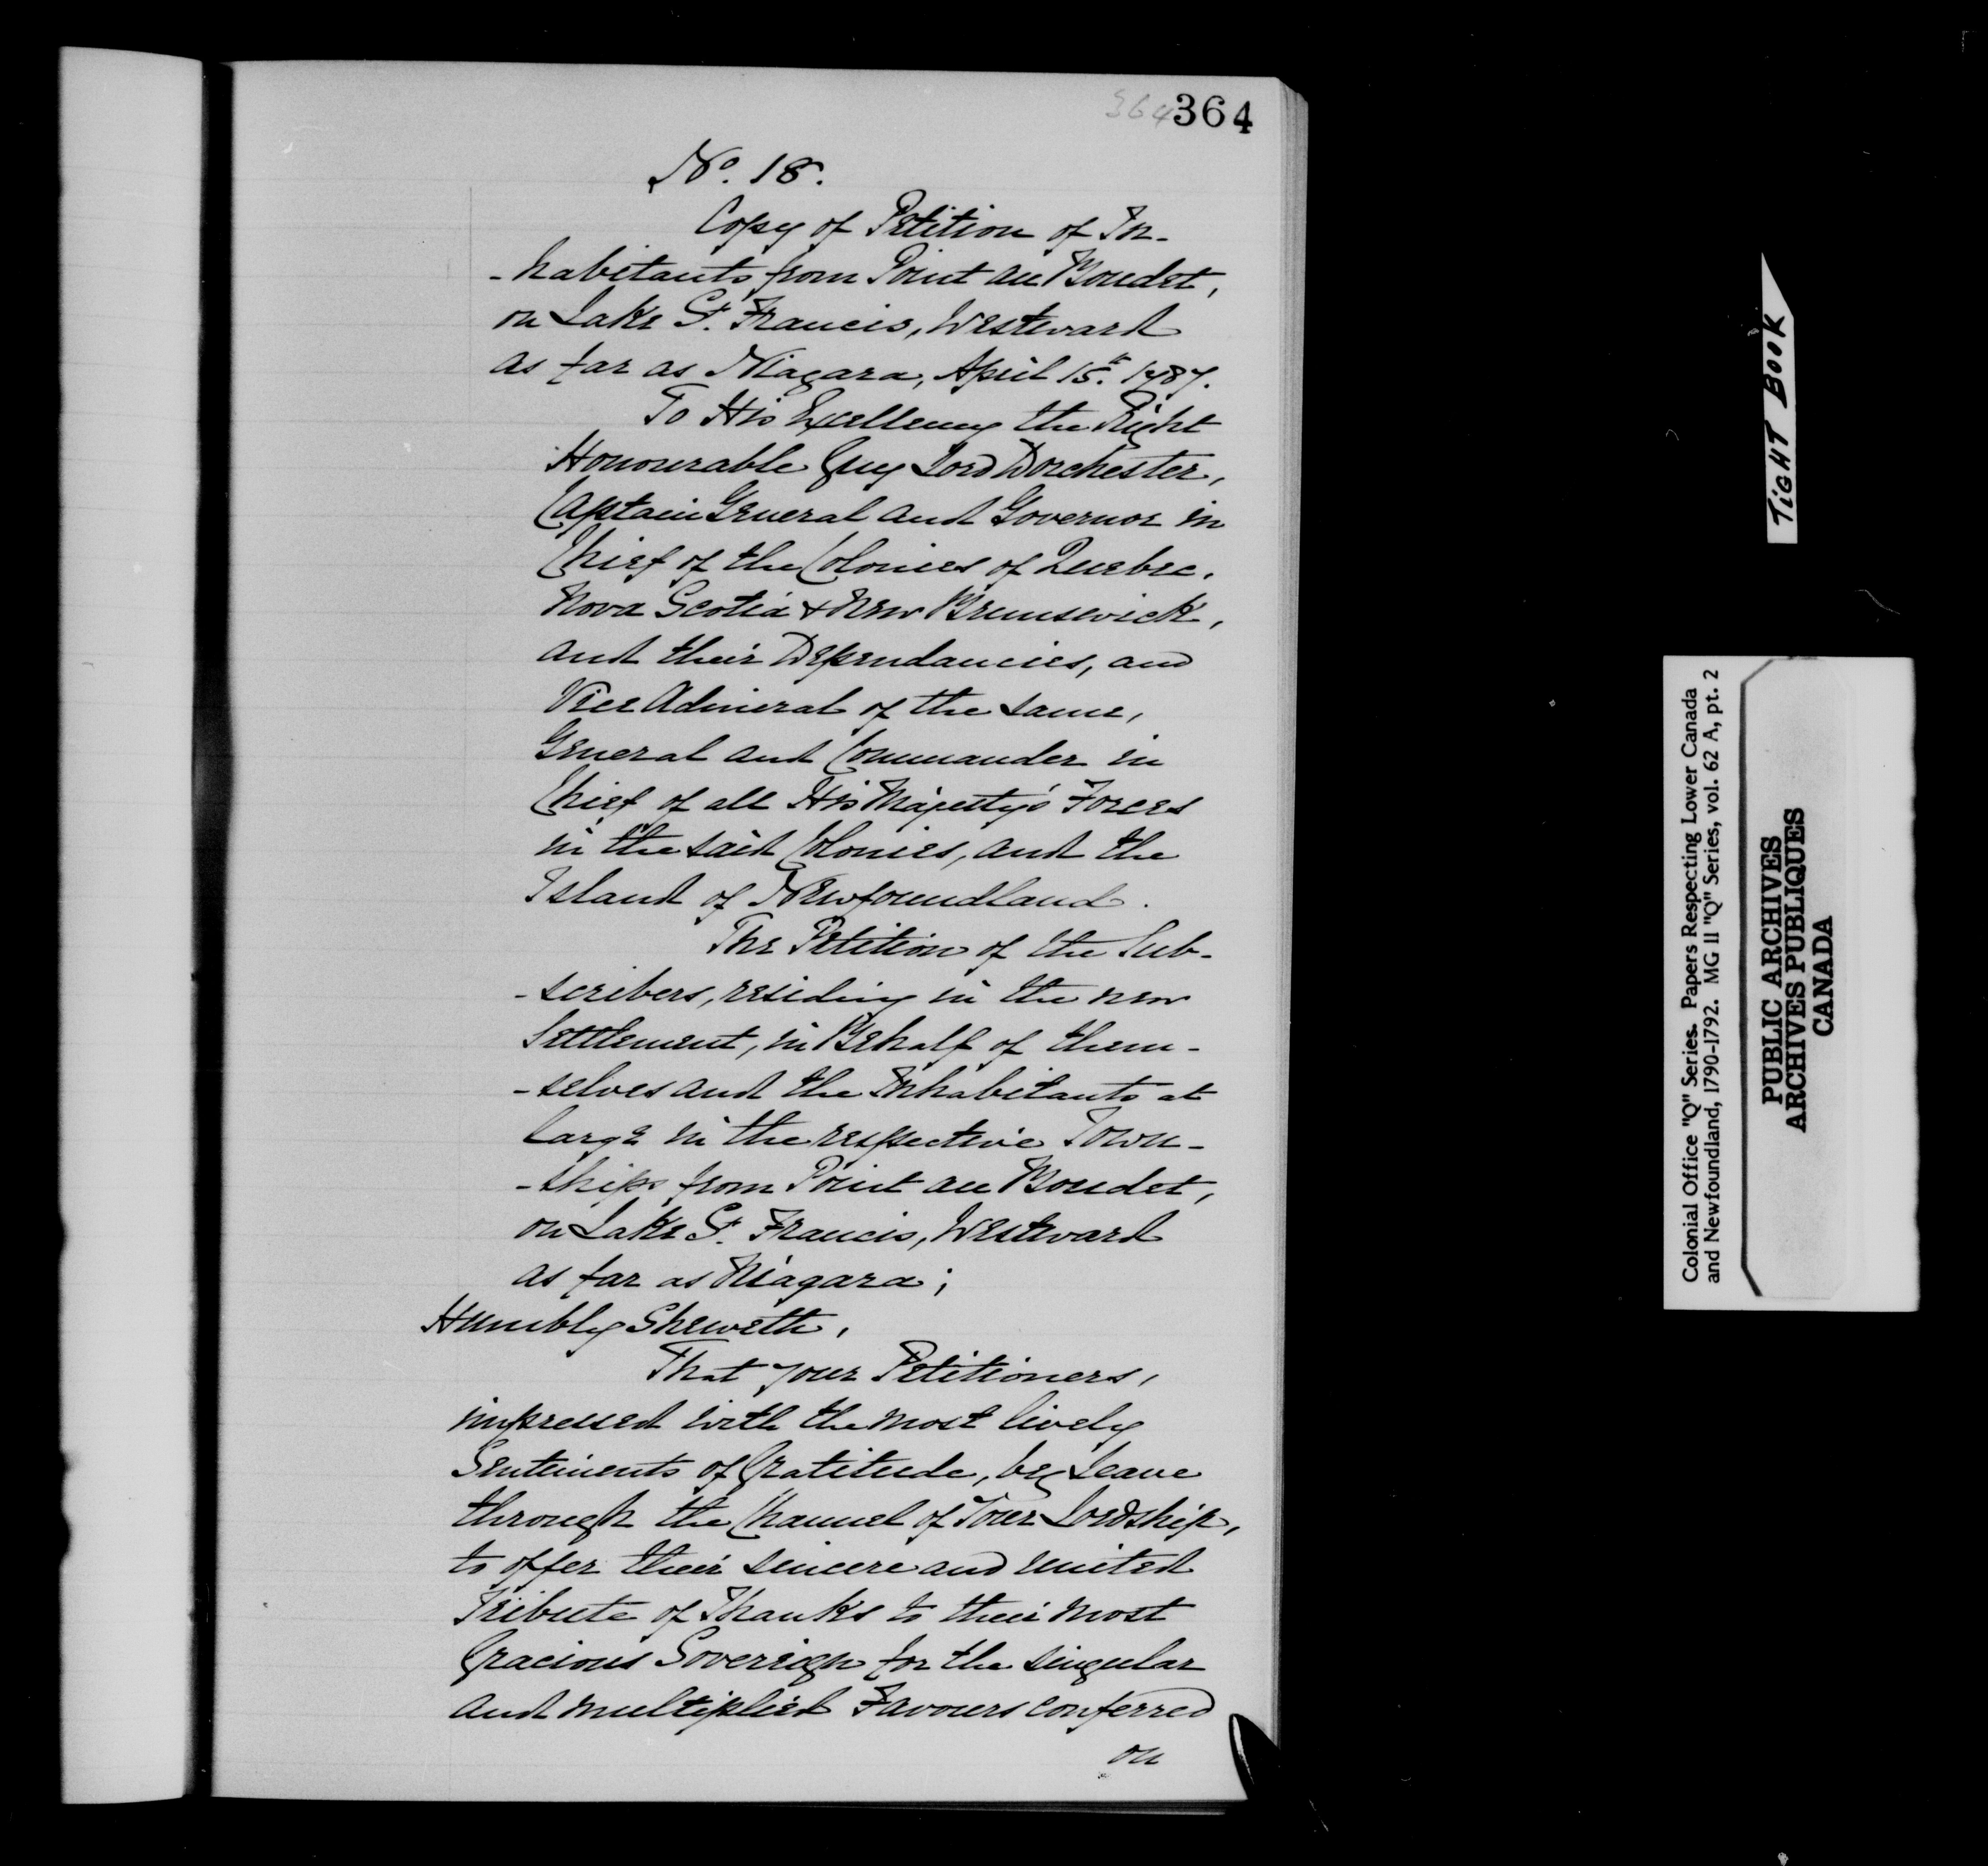 364 364
No. 18.
Copy of Petition of In-
-habitants from Point au Boudet,
on Lake St. Francis, Westward
as far as Niagara, April 15th. 1787.
To His Excellency the Right
Honourable Guy Lord Dorchester,
Captain General and Governor in
Chief of the Colonies of Quebec,
Nova Scotia & New Brunswick,
and their Dependancies, and
Vice Admiral of the same,
General and Commander in
Chief of all His Majesty's Forces
in the said Colonies, and the
Island of Newfoundland.
The Petition of the Sub-
-scribers, residing in the new
Settlement, in Behalf of them-
-selves and the Inhabitants at
large in the respective Town-
-ships from Point au Boudet,
on Lake St. Francis, Westward
as far as Niagara;
Humbly Sheweth,
That your Petitioners,
impressed with the most lively
Sentiments of Gratitude, beg Leave
through the Channel of Your Lordship,
to offer their sincere and united
Tribute of Thanks to their most
Gracious Sovereign for the singular
and multiplied Favours conferred
on
TiGHT BOOK
Colonial Office "Q" Series. Papers Respecting Lower Canada
and Newfoundland, 1790-1792. MG 11 "Q" Series, vol. 62 A, pt. 2
PUBLIC ARCHIVES
ARCHIVES PUBLIQUES
CANADA